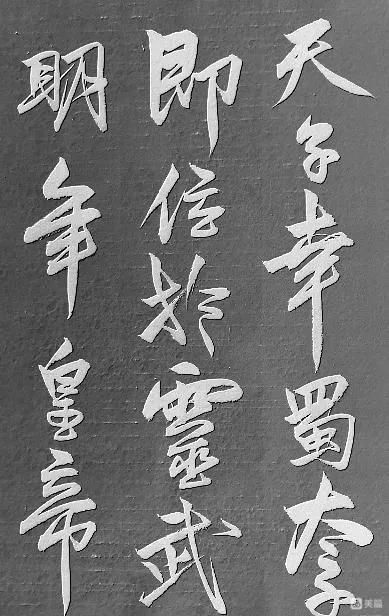 天子幸蜀太子
即位於靈武
明年皇帝
美篇